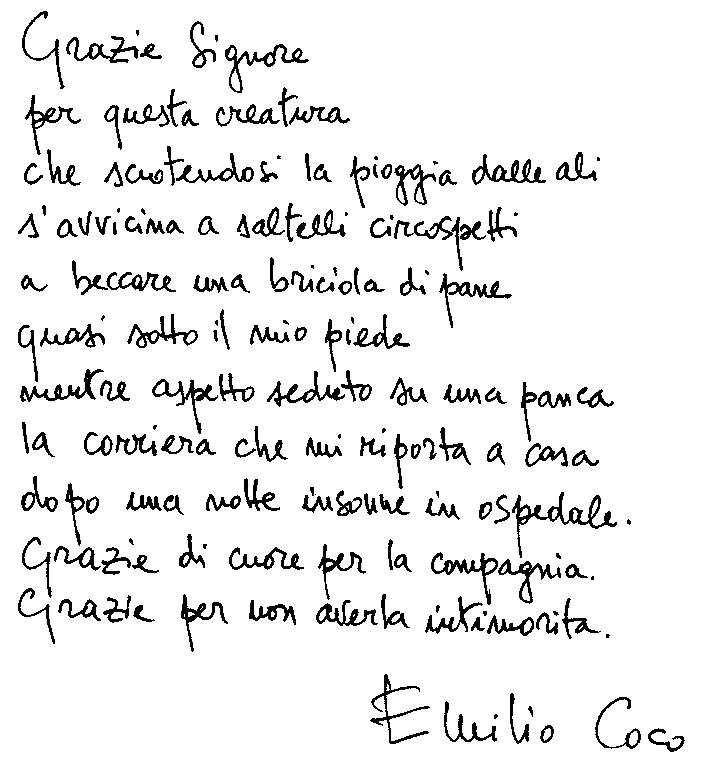 Grazie Signore
per questa creatura
che scuotendosi la pioggia dalle ali
s'avvicina a saltelli circospetti
a beccare una briciola di pane
quasi sotto il mio piede
mentre aspetto seduto su una panca
la corriera che mi riporta a casa
dopo una notte insonne in ospedale.
Grazie di cuore per la compagnia.
Grazie per non averla intimorita.
Emilio Coco